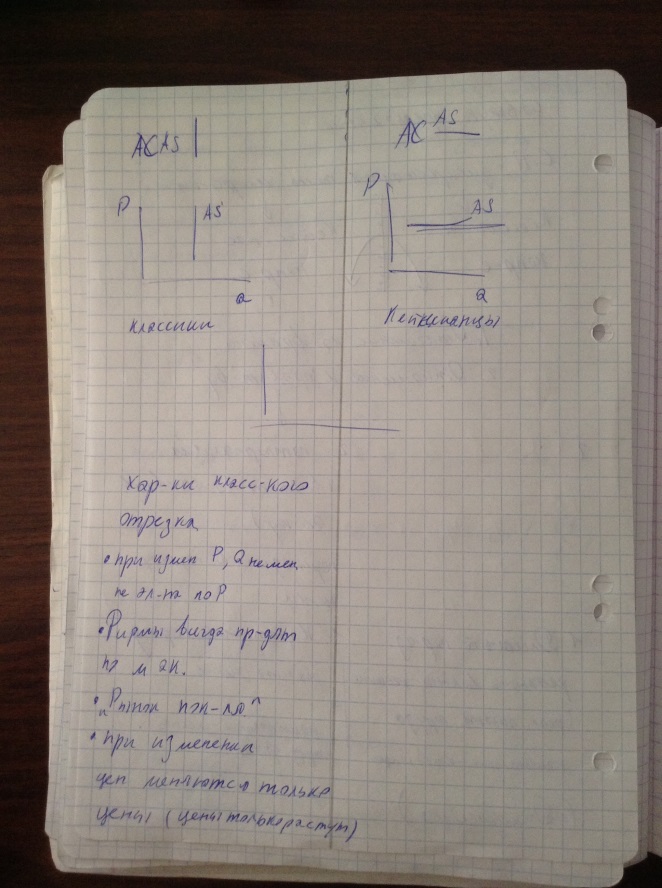 AC AS
AC AS
P AS
Q
классики
P AS
Q
Кейнсианцы
хар-ки класс-кого
отрезка
• при измен P, Q не мен
не эл-на по P
• Фирмы всегда пр-дят
на мак.
•
• при изменении
цен меняются только
цены (цены только растут)